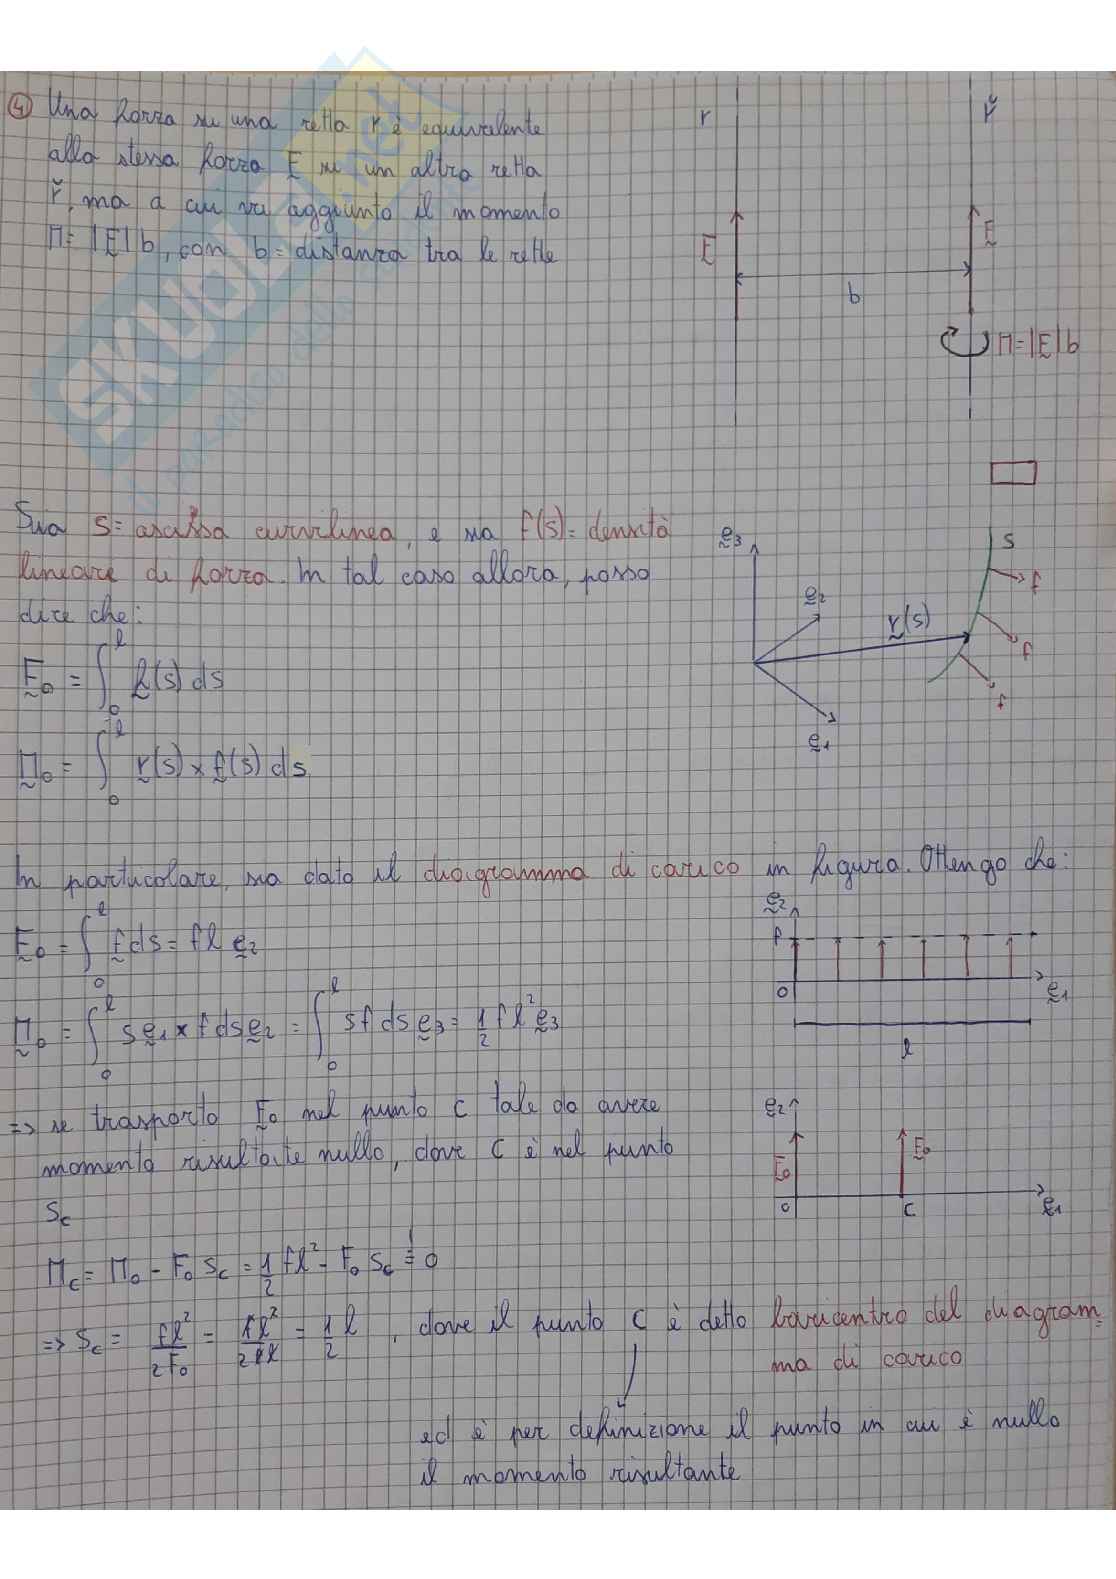 ④ Una forza su una retta r è equivalente
alla stessa forza F su un altra retta
ř, ma a cui va aggiunto il momento
M=|F|b, con b= distanza tra le rette
r
ř
F
F
b
M=|F|b
Sia s= ascissa curvilinea, e sia f(s)= densità
lineare di forza. In tal caso allora, posso
dire che:
F₀ = ∫₀ˡ f(s) ds
M₀ = ∫₀ˡ r(s) × f(s) ds
e₃
e₂
r(s)
e₁
s
f
f
f
In particolare, sia dato il diagramma di carico in figura. Ottengo che:
F₀ = ∫₀ˡ f ds = f l e₂
M₀ = ∫₀ˡ s e₁ × f ds e₂ = ∫₀ˡ s f ds e₃ = 1/2 f l² e₃
e₂
f
0
e₁
l
=> se trasporto F₀ nel punto C tale da avere
momento risultante nullo, dove C è nel punto
s_c
e₂
F₀
F₀
0
C
e₁
M_c = M₀ - F₀ s_c = 1/2 f l² - F₀ s_c != 0
=> s_c = f l²/2F₀ = f l²/2 f l = 1/2 l , dove il punto C è detto baricentro del diagram=
ma di carico
ed è per definizione il punto in cui è nullo
il momento risultante
SKUOLA.net